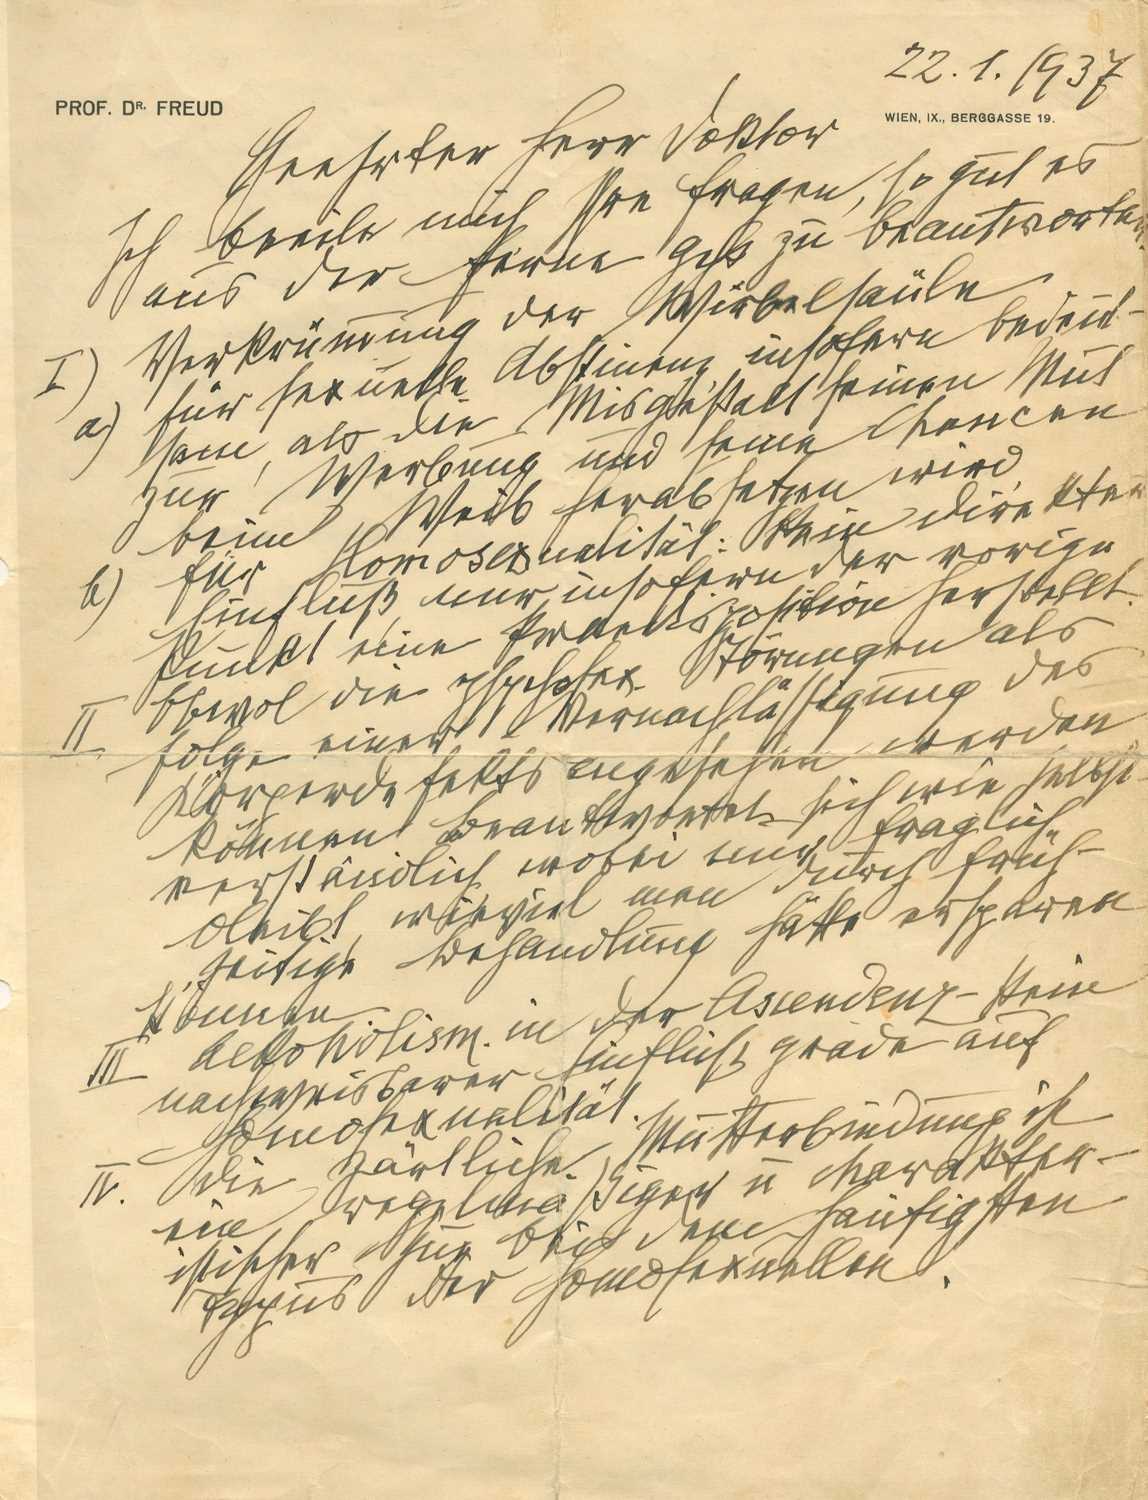 22.1.1937
PROF. DR. FREUD
WIEN, IX., BERGGASSE 19.
Geehrter Herr Doktor
Ich beeile mich Ihre Fragen, so gut es
aus der Ferne geht zu beantworten.
I) Verkrümmung der Wirbelsäule
a) für sexuelle Abstinenz insofern bedeut-
sam, als die Misgestalt seinen Mut
zur Werbung und seine Chancen
beim Weib herabsetzen wird
b) für Homosexualität: Kein direkter
Einfluß, nur insofern der vorige
Punkt eine Praedisposition herstellt.
II Obwol die psychosex. Störungen als
Folge einer Vernachlässigung des
Körperdefekts angesehen werden
können beantwortet sich wie selbst
verständlich wobei nur fraglich
bleibt, wieviel man durch früh-
zeitige Behandlung hätte ersparen
können
III Alkoholism. in der Ascendenz – Kein
nachweisbarer Einfluß grade auf
Homosexualität.
IV. Die zärtliche Mutterbindung ist
ein regelmäßiger u charakter-
istischer Zug bei dem häufigsten
Typus der Homosexuellen.